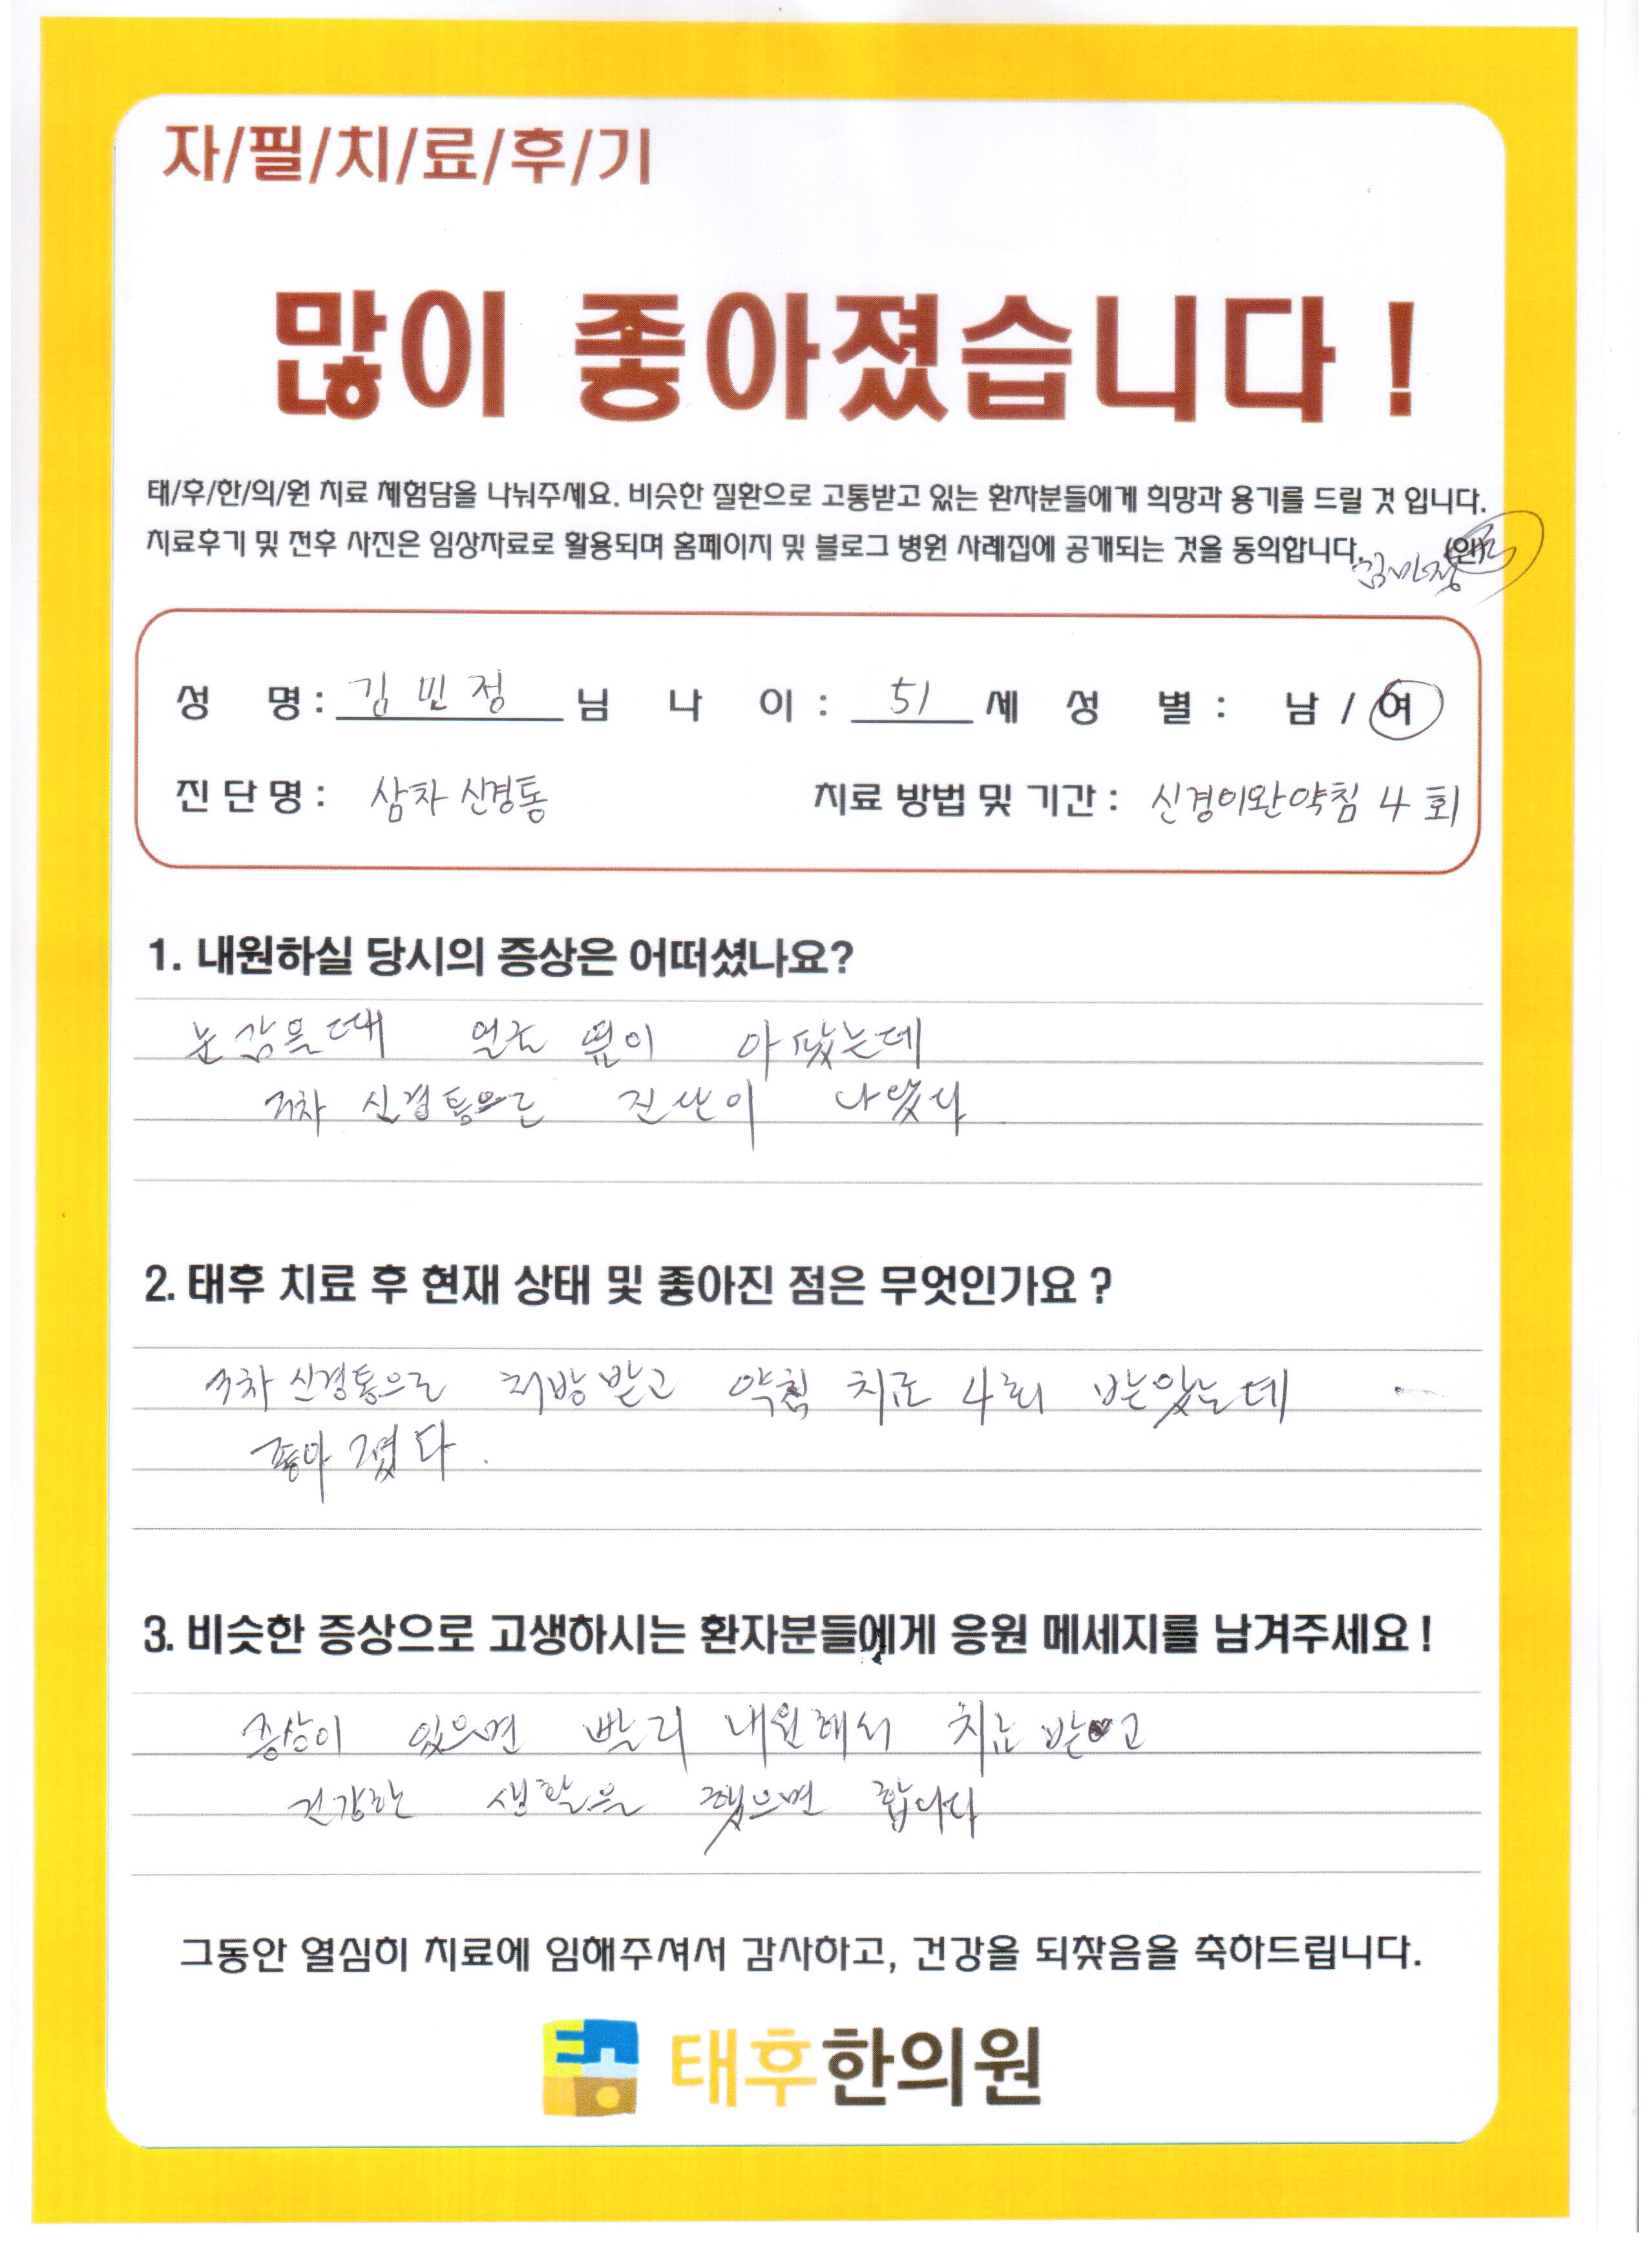 자/필/치/료/후/기
많이 좋아졌습니다!
태/후/한/의/원 치료 체험담을 나눠주세요. 비슷한 질환으로 고통받고 있는 환자분들에게 희망과 용기를 드릴 것 입니다.
치료후기 및 전후 사진은 임상자료로 활용되며 홈페이지 및 블로그 병원 사례집에 공개되는 것을 동의합니다. 김민정 (인)
성 명: 김민정 님 나 이 : 51 세 성 별 : 남 / 여
진 단 명 : 삼차 신경통 치료 방법 및 기간 : 신경이완약침 4회
1. 내원하실 당시의 증상은 어떠셨나요?
눈 감을 때 얼굴 옆이 아팠는데
3차 신경통으로 진단이 나왔다
2. 태후 치료 후 현재 상태 및 좋아진 점은 무엇인가요 ?
3차 신경통으로 처방받고 약침 치료 4회 받았는데
좋아졌다.
3. 비슷한 증상으로 고생하시는 환자분들에게 응원 메세지를 남겨주세요 !
증상이 있으면 빨리 내원해서 치료 받고
건강한 생활을 했으면 합니다
그동안 열심히 치료에 임해주셔서 감사하고, 건강을 되찾음을 축하드립니다.
태후한의원